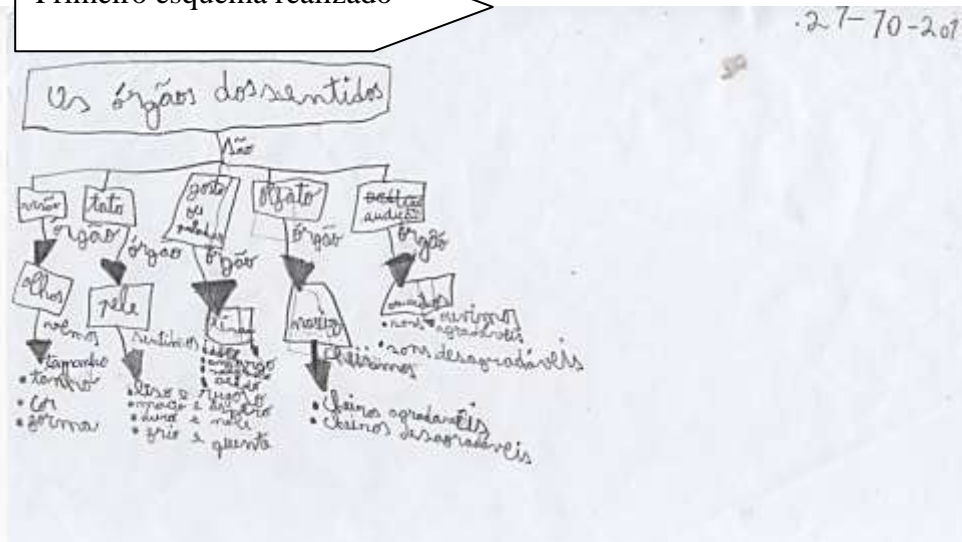 Primeiro esquema realizado
.27-10-201
Os órgãos dos sentidos
são
visão
tato
gosto
ou
paladar
olfato
audição
órgão
órgão
órgão
órgão
órgão
olhos
pele
língua
nariz
ouvidos
vemos
sentimos
cheiramos
ouvimos
tamanho
• cor
• forma
• liso e rugoso
• macio e áspero
• duro e mole
• frio e quente
• doce
• amargo
• salgado
• acido
• cheiros agradavéis
• cheiros desagradavéis
• sons agradavéis
• sons desagradavéis